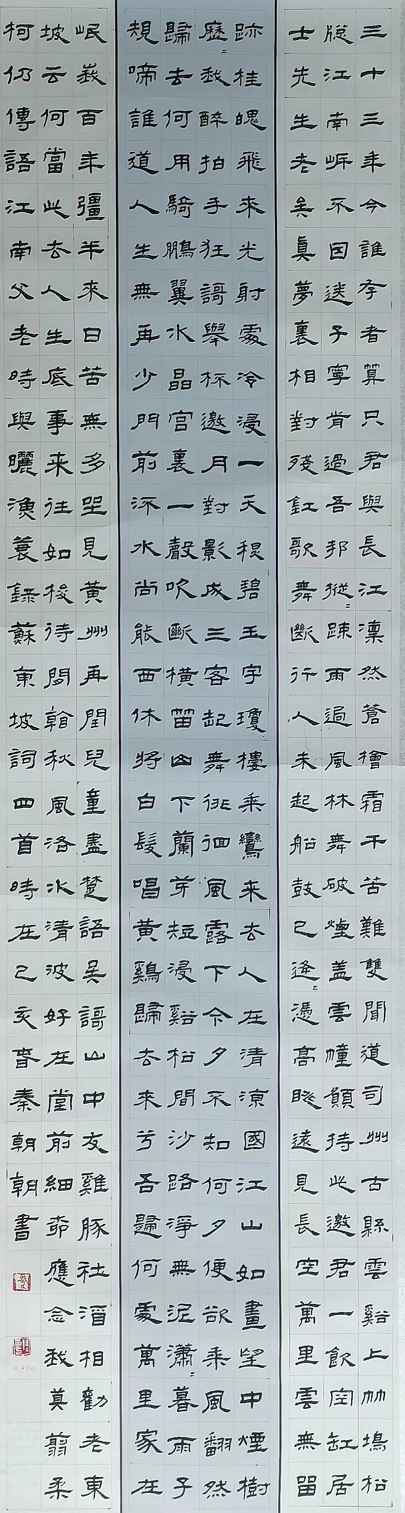 三十三年今誰存者算只君與長江凜然蒼檜霜干苦難雙聞道司州古縣雲谿上竹塢松
窻江南岸不因送子寧肯過吾邦摐〻踈雨過風林舞破煙盖雲幢願持此邀君一飲空缸居
士先生老矣真夢裏相對殘釭歌舞斷行人未起船鼓已逄〻憑高眺遠見長空萬里雲無留
跡桂魄飛來光射處冷浸一天秋碧玉宇瓊樓乘鸞來去人在清涼國江山如畫望中煙樹
歷〻我醉拍手狂謌舉杯邀月對影成三客起舞徘徊風露下今夕不知何夕便欲乘風翻然
歸去何用騎鵬翼水晶宮裏一聲吹斷橫笛山下蘭芽短浸谿松間沙路淨無泥瀟〻暮雨子
規啼誰道人生無再少門前流水尚能西休將白髮唱黃雞歸去來兮吾歸何處萬里家在
岷峩百年彊半來日苦無多坐見黃州再閏兒童盡楚語吳謌山中友雞豚社酒相勸老東
坡云何當此去人生底事來往如梭待閒看秋風洛水清波好在堂前細柳應念我莫翦柔
柯仍傳語江南父老時與曬漁蓑錄蘇東坡詞四首時在己亥春秦朝朝書